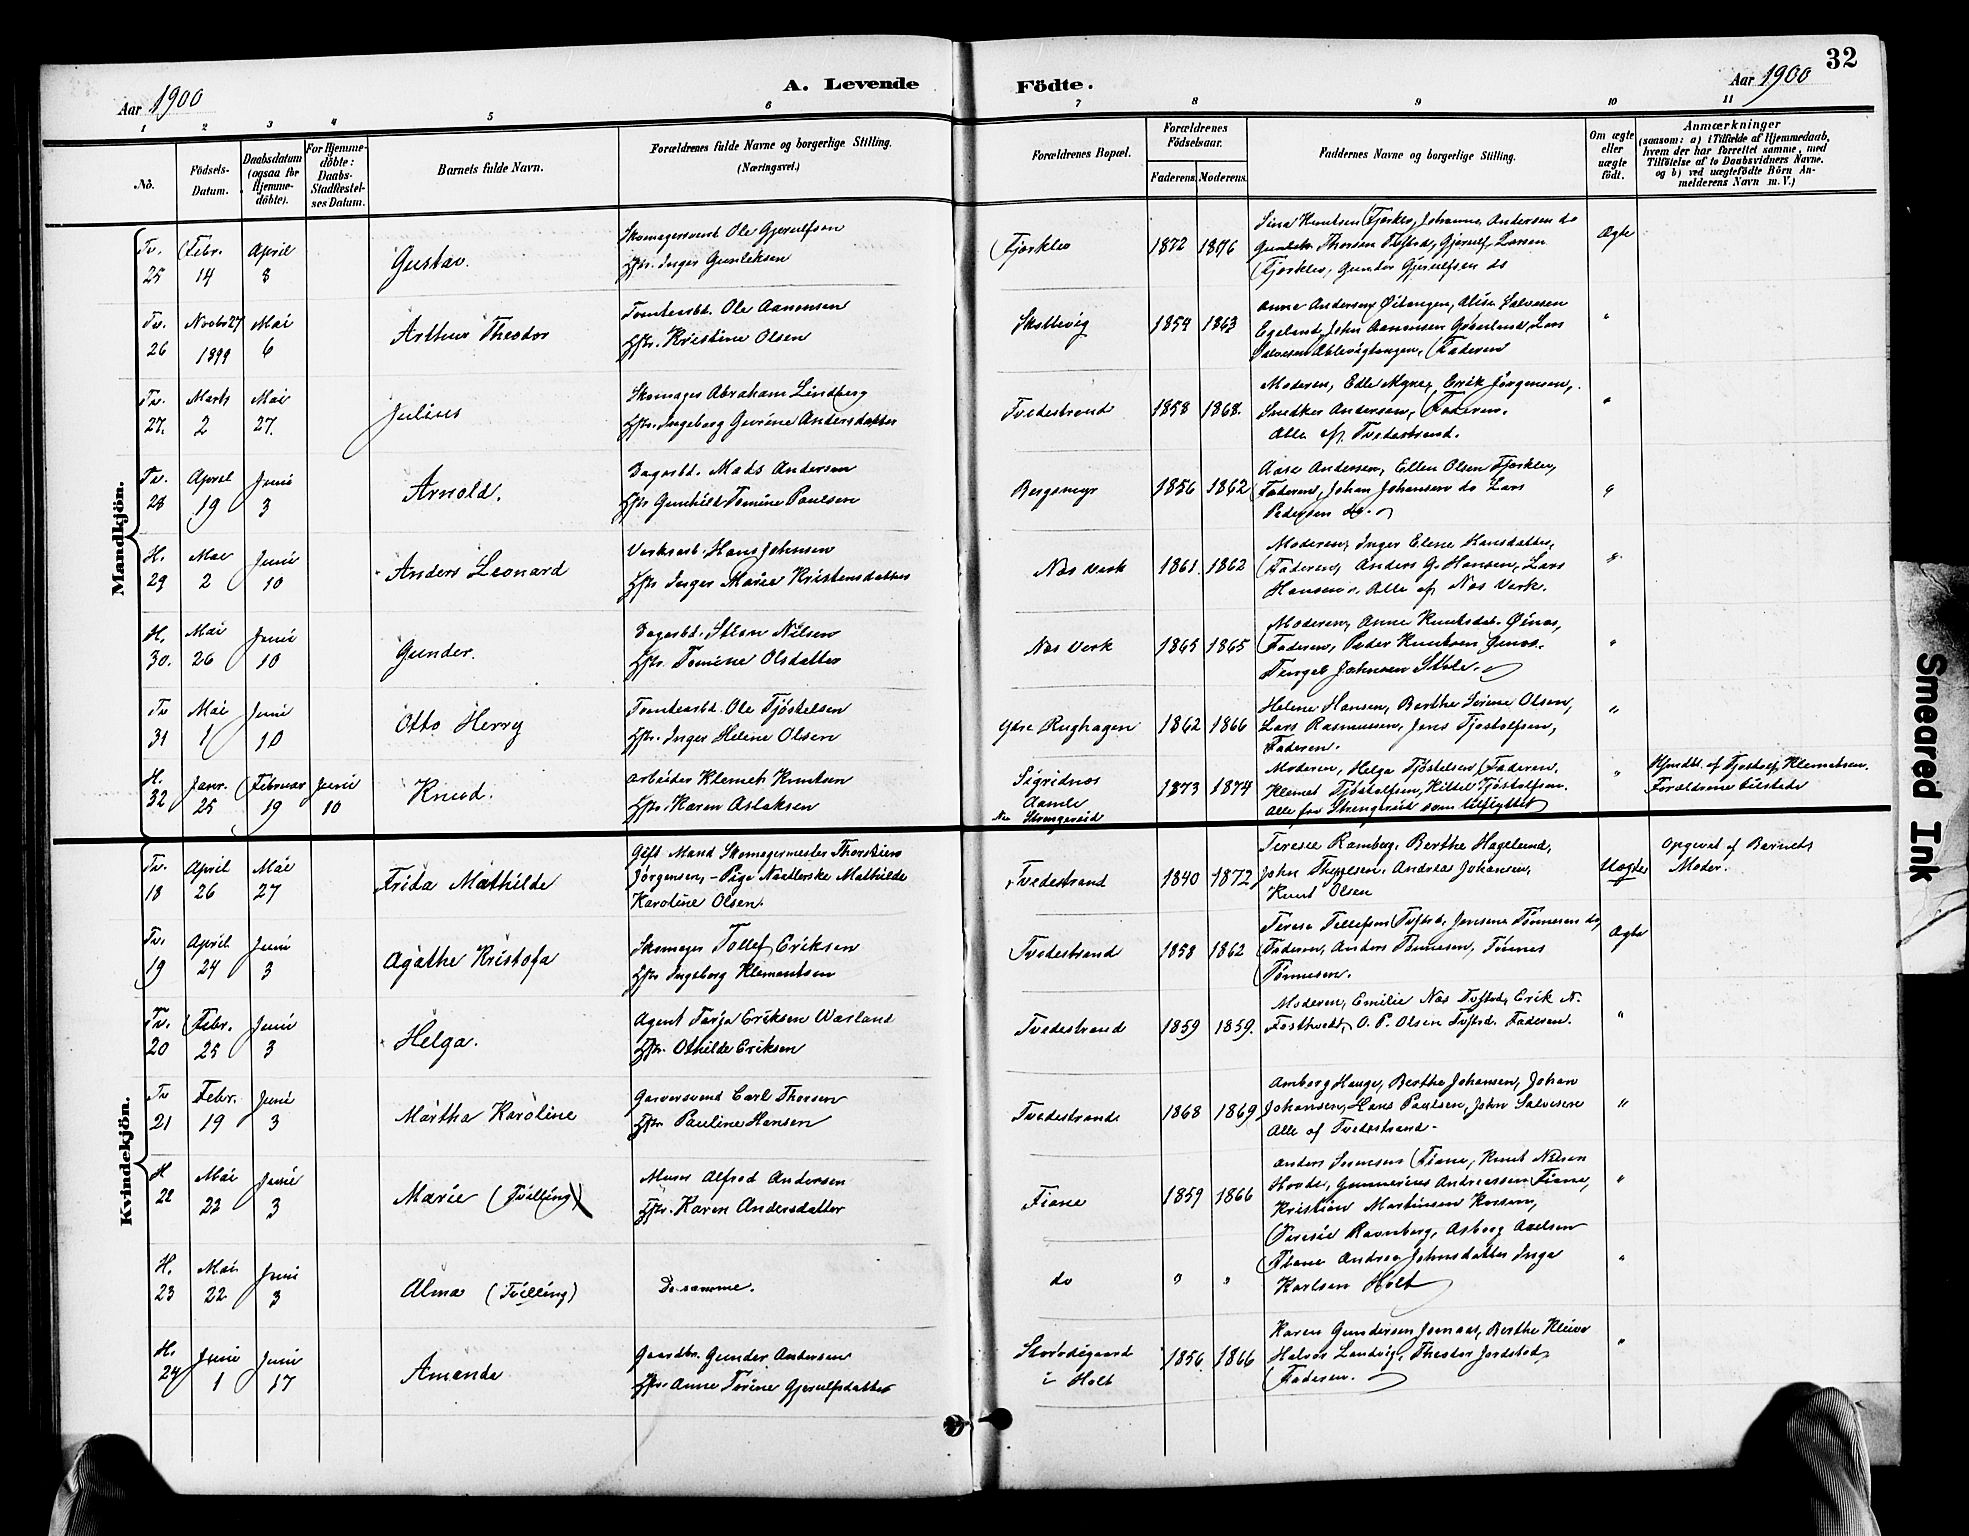 32
Aar 1900
A. Levende Födte.
Aar 1900
1 2 3 4 5 6 7 8 9 10 11
No.
Födsels-Datum.
Daabsdatum (ogsaa for Hjemme-döbte).
For Hjemme-döbte: Daabs-Stadfæstel-ses Datum.
Barnets fulde Navn.
Forældrenes fulde Navne og borgerlige Stilling.
(Næringsvei.)
Forældrenes Bopæl.
Forældrenes Födselsaar.
Faderens. Moderens.
Faddernes Navne og borgerlige Stilling.
Om ægte eller uægte födt.
Anmærkninger
(saasom: a) i Tilfælde af Hjemmedaab,
hvem der har forrettet samme, med
Tilföielse af to Daabsvidners Navne.
og b) ved uægtefödte Börn An-
melderens Navn m. V.)
Mandkjön.
Tv. 25 Febr. 14 April 8 Gustav.
Skomagersvend Ole Gjerulfsen
Hstr. Inger Gunleksen
Fjærklev 1872 1876
Sina Knutsen Fjærklev, Johanne Andersen do
Thorsen Tvstrd, Gjerulf Larsen
Fjærklev, Gunder Gjerulfsen do
Ægte
Tv. 26 Novbr 27 1899 Mai 6 Arthur Theodor
Tomtearbd. Ole Aanonsen
Hstr. Kristine Olsen
Skottevig 1859 1863
Anne Andersen Öitangen, Alise Salvesen
Egeland, John Aanonsen Grönlund, Lars
Salvesen Ablevigtangen, Faderen
"
Tv. 27. Marts 2 Mai 27. Julius
Skomager Abraham Lindberg
Hstr. Ingeborg Gurine Andersdatter
Tvedestrand 1858 1868.
Moderen, Edle Myre, Erik Jörgensen,
Snedker Andersen, Faderen.
Alle af Tvedestrand.
"
Tv. 28 April 19 Juni 3 Arnold.
Dagarbd. Mads Andersen
Hstr Gunhild Tomine Paulsen
Bergsmyr 1856 1862
Aase Andersen, Ellen Olsen Fjærklev,
Faderen, Johan Johansen do Lars
Pedersen do.
"
H. 29 Mai 2 Juni 10 Anders Leonard
Verksarb. Hans Johnsen
Hstr Inger Marie Kristensdatter
Næs Verk 1861. 1862
Moderen, Inger Elene Hansdatter,
Faderen, Anders G. Hansen, Lars
Hansen, Alle af Næs Verk.
"
H. 30. Mai 26 Juni 10 Gunder.
Dagarbd. Stian Nilsen
Hstr. Tomine Olsdatter
Næs Verk 1865 1865
Moderen, Anne Knutsdat. Öinæs,
Faderen, Peder Knutsen
Tengel Johnsen
"
Tv 31 Mai 1 Juni 10 Otto Herry
Tomtearbd. Ole Tjöstelsen
Hstr. Inger Helene Olsen
Ytre Rughagen 1862 1866
Helene Hansen, Berthe Serine Olsen,
Lars Rasmussen, Jens Tjostolfsen,
Faderen.
"
H. 32 Janr. 25 Februar 19 Juni 10 Knud.
Arbeider Klemet Knutsen
Hstr. Karen Aslaksen
Sigridnæs
Aamle
Nu Strengereid 1873 1874
Moderen, Helga Tjöstelsen, Faderen,
Klemet Tjöstolfsen, Kittel Tjöstolfsen.
Alle fra Strengereid som tilflyttet
"
Hjmdbt. af Tjostolf Klemetsen.
Forældrene tilstede
Kvindekjön.
Tv. 18 April 26 Mai 27 Frida Mathilde
Gift Mand Skomagermester Thorstein
Jörgensen, - Pige Næstlerske Mathilde
Karoline Olsen.
Tvedestrand 1840 1872
Teresie Ramberg, Berthe Hagelund,
John Thygesen, Andrea Johansen,
Knut Olsen
Uægte
Opgivet af Barnets
Moder.
Tv. 19 April 24 Juni 3 Agathe Kristofa
Skomager Tollef Eriksen
Hstr Ingeborg Klementsen
Tvedestrand 1858 1862
Terese Tellefsen Tvstrd, Jensine Tönnesen do,
Faderen, Anders Tönnesen, Tönnes
Tönnesen.
Ægte
Tv. 20 Febr. 25 Juni 3 Helga.
Agent Tarje Eriksen Wasland
Hstr. Othilde Eriksen
Tvedestrand 1859 1859.
Moderen, Emilie Næs Tvstrd, Erik N.
Fosthvedt, O. P. Olsen Tvstrd. Faderen.
"
Tv 21 Febr. 19 Juni 3 Martha Karoline
Garversvend Carl Thorsen
Hstr Pauline Hansen
Tvedestrand 1868 1869
Amborg Hauge, Berthe Johansen, Johan
Johansen, Hans Paulsen, John Salvesen
Alle af Tvedestrand-
"
H 22 Mai 22 Juni 3 Marie (Tvilling)
Murer Alfred Andersen
Hstr. Karen Andersdatter
Fiane 1859 1866
Anders Svensen Fiane, Knut Nilsen
Hovde, Gunnerius Andreassen Fiane,
Kristian Martinsen
"
H. 23 Mai 22 Juni 3 Alma (Tvilling)
De samme.
do " "
Teresie Ravnberg, Asborg Axelsen
Fiane Andrea Johnsdatter Inga
Karlsen Holt
"
H. 24 Juni 1 Juni 17 Amanda
Gaardbr. Gunder Andersen
Hstr. Anne Torine Gjerulfsdatter
i Holt 1856 1866
Karen Gundersen Jomaas, Berthe Kleive
Halvor Landvig, Theodor
Faderen.
"
Smeared Ink